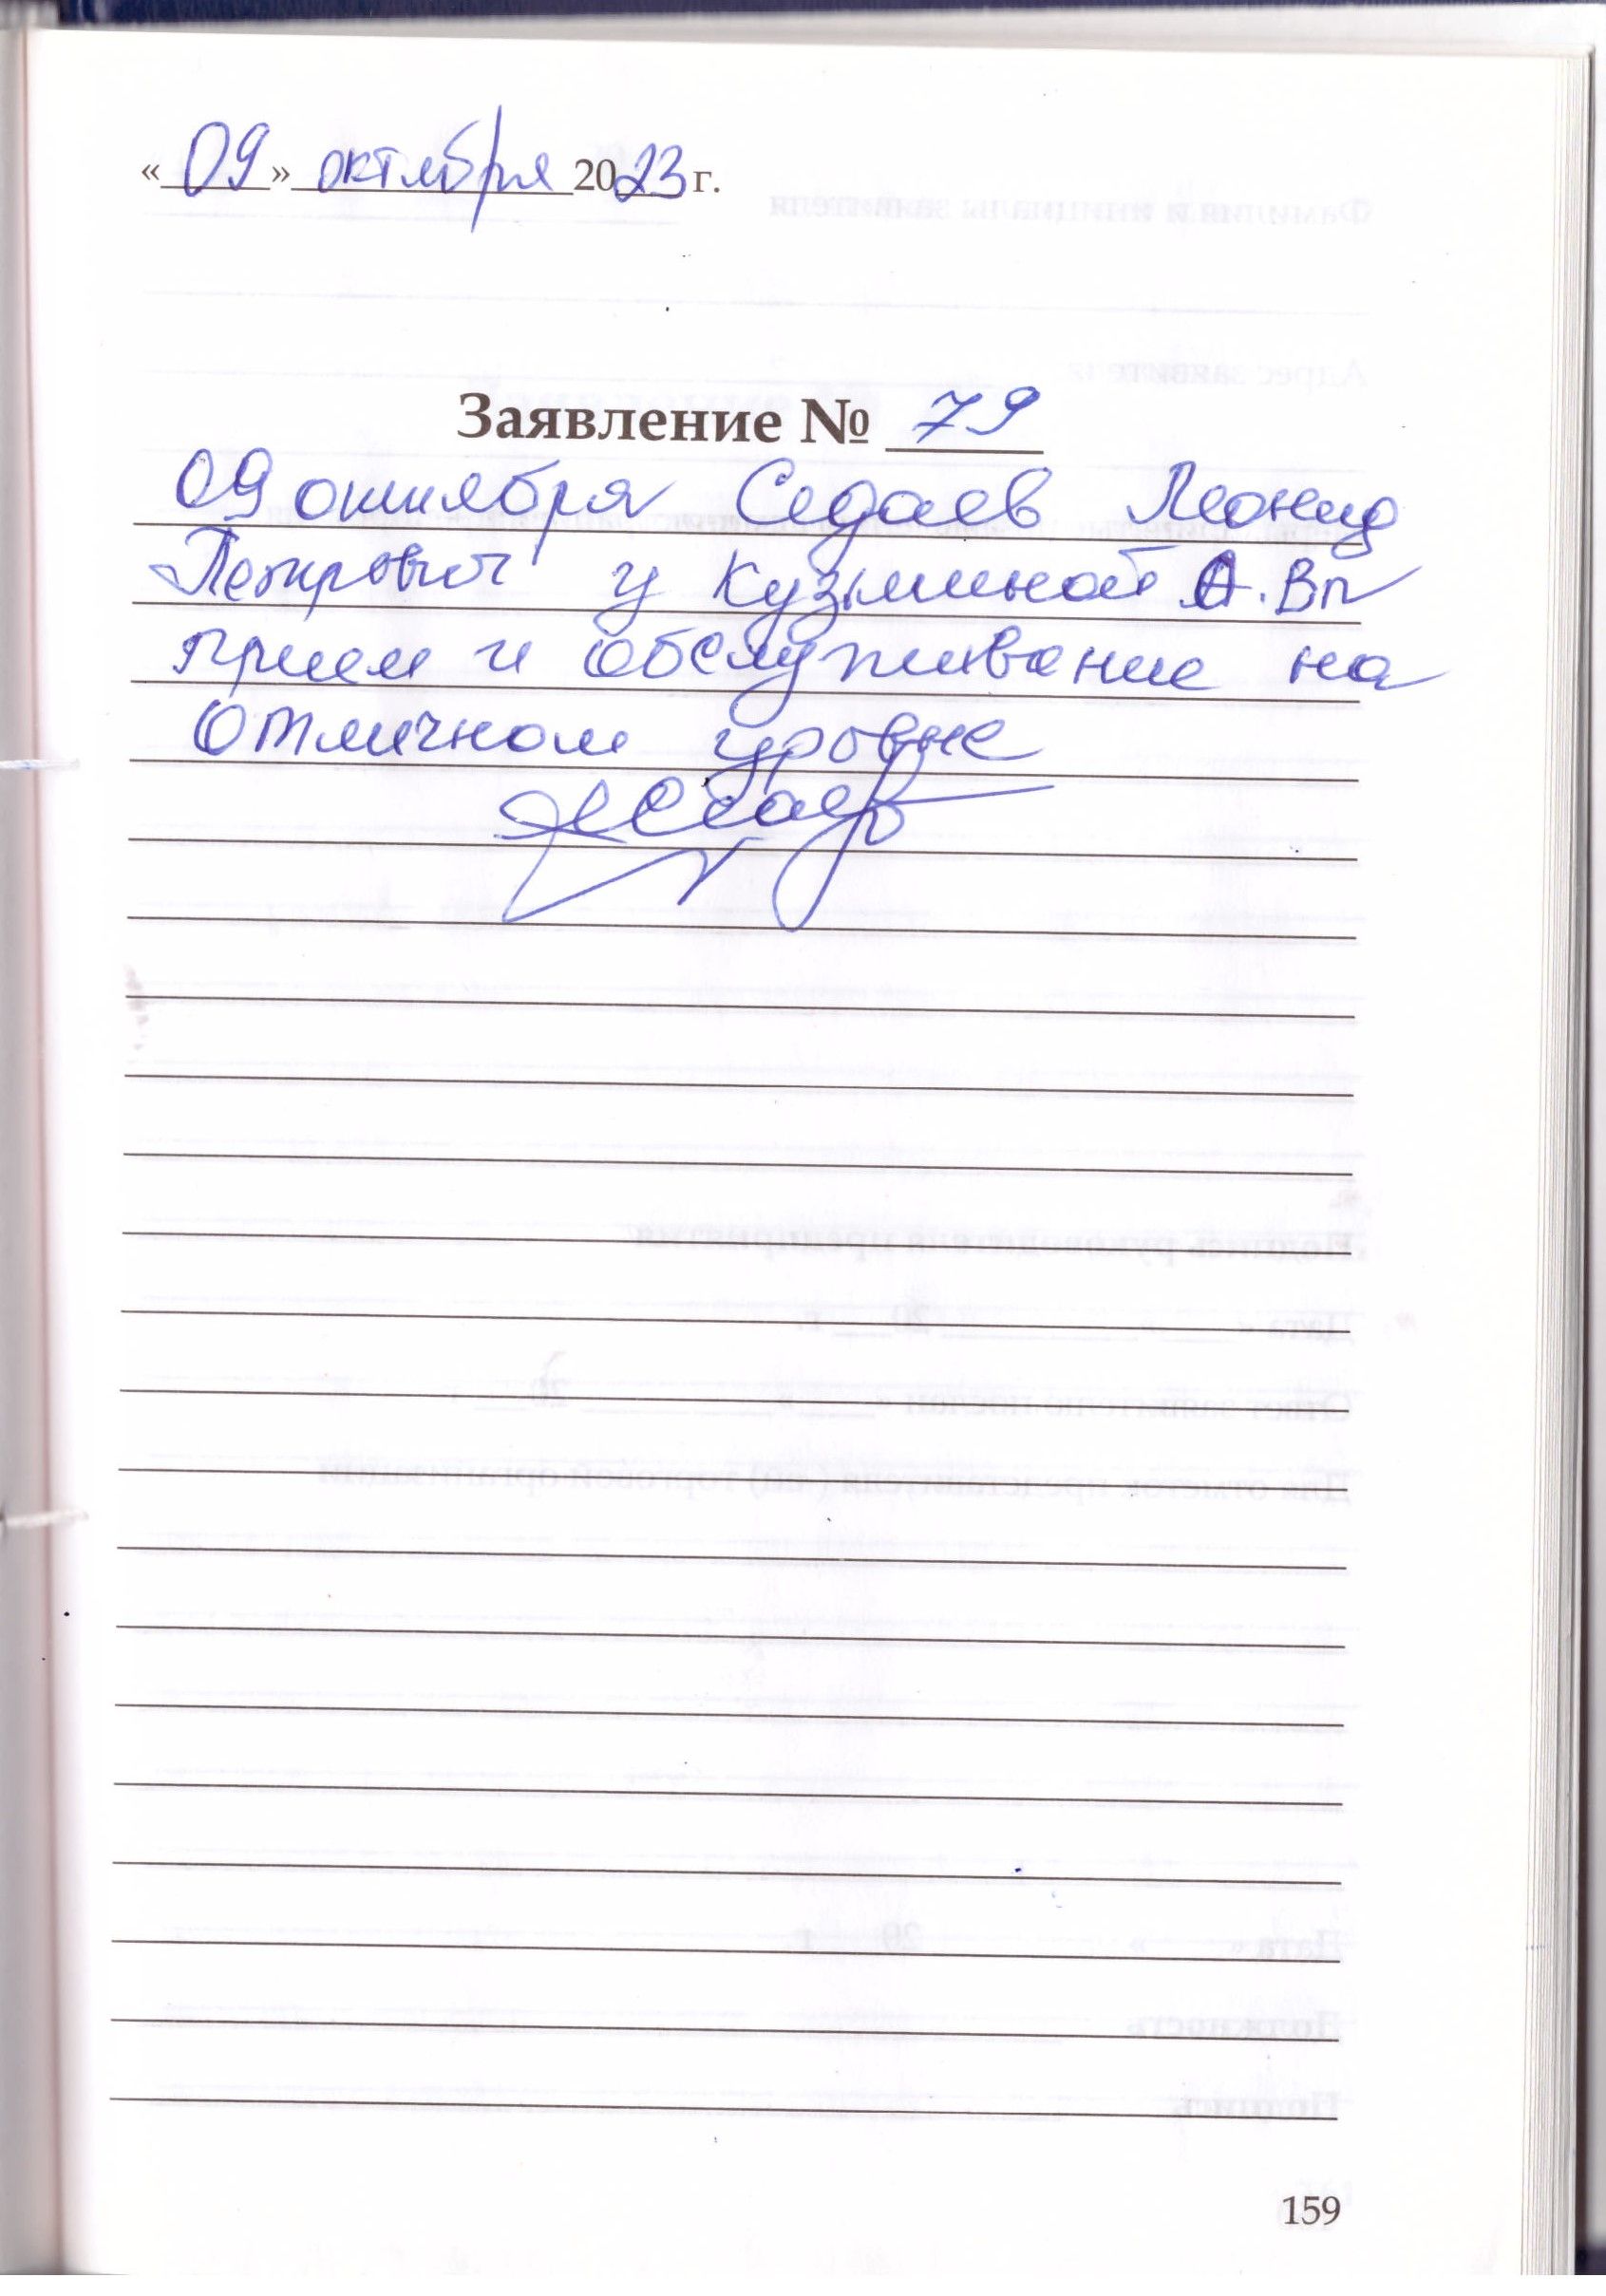 «09» октября 2023 г.
Заявление № 79
09 октября Седаев Леонид
Петрович у Кузьминой А.В
прием и обслуживание на
отличном уровне
159